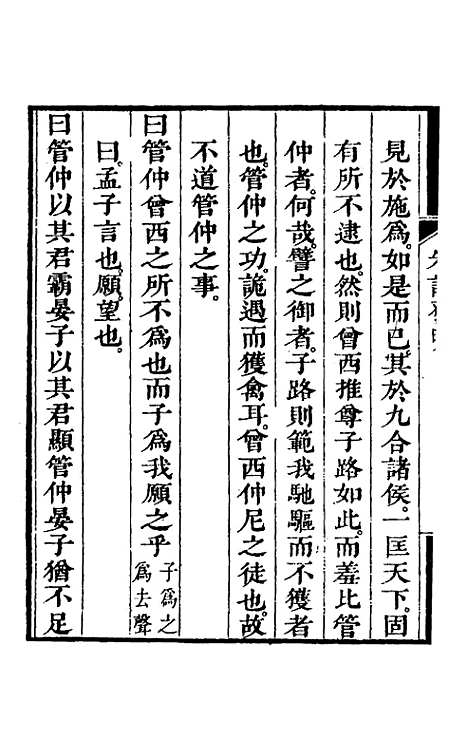 見於施爲。如是而已。其於九合諸侯。一匡天下。固
有所不逮也。然則曾西推尊子路如此。而羞比管
仲者。何哉。譬之御者。子路則範我馳驅而不獲者
也。管仲之功。詭遇而獲禽耳。曾西仲尼之徒也。故
不道管仲之事。
曰管仲曾西之所不爲也而子爲我願之乎
子爲之
爲去聲
曰。孟子言也。願。望也。
曰管仲以其君霸晏子以其君顯管仲晏子猶不足